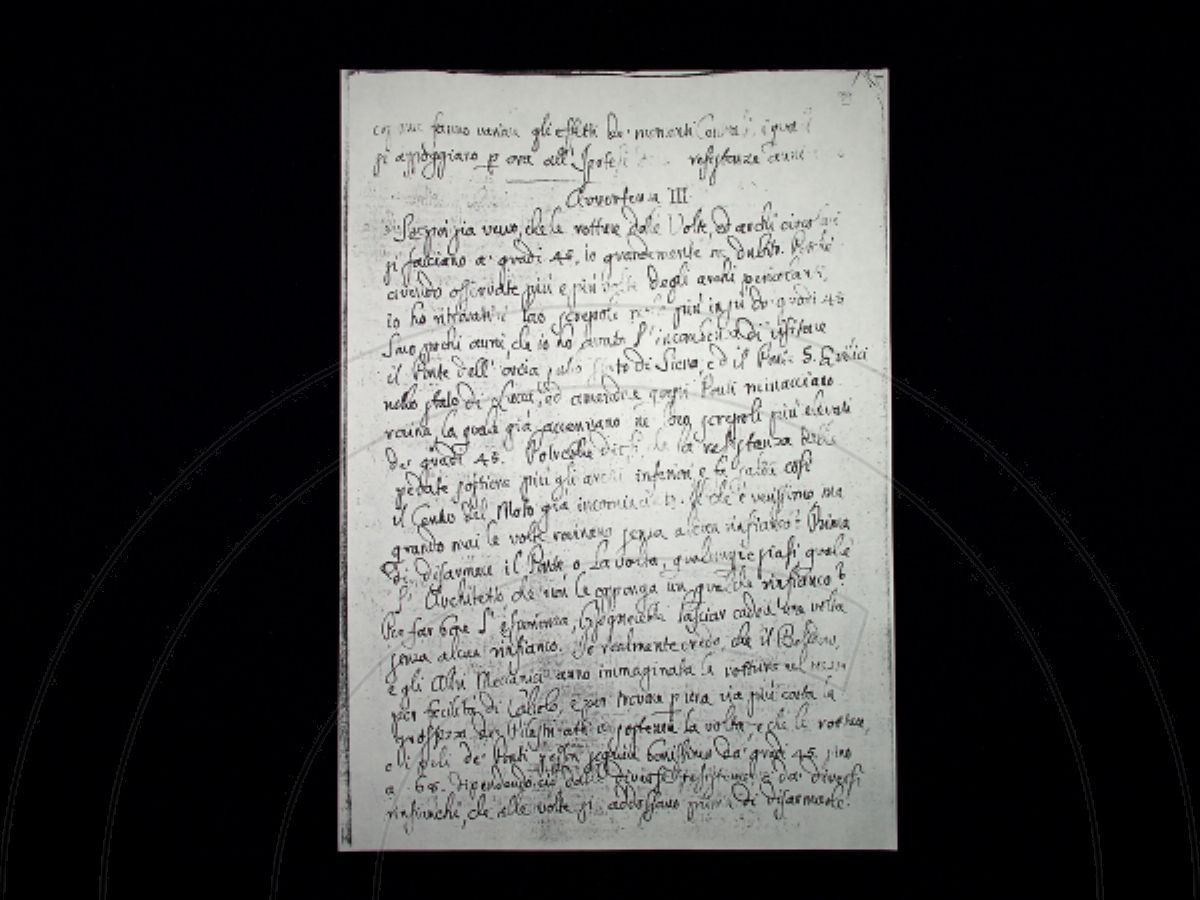 fanno variare gli effetti de' momenti
si appoggiano p ora all' Ipotesi resistenza
Avvertenza III
Se poi sia vero, che le rotture delle Volte, ed archi
si facciano a' gradi 45, io grandemente ne dubito. Perché
avendo osservate più e più volte degli archi
io ho ritrovati le loro screpoli più in su de' gradi 45
Sono pochi anni, che io ho avuta l' di visitare
il Ponte dell' Stato di Siena, ed il Ponte S.
nello stato di Lucca, ed amendue questi Ponti minacciano
rovina, la quale già accennano ne' loro screpoli più elevati
de' gradi 45. che la resistenza delle
pedate sostiene più gli archi inferiori e fa salire così
il Centro del Moto già Il che è verissimo ma
quando mai le volte rovinano senza alcun rinfianco? Prima
di disarmare il Ponte o La volta, qualunque siasi quale è
l' Architetto che non le opponga un qualche rinfianco?
Per far bene l' esperienza, bisognerebbe lasciar cadere una volta
senza alcun rinfianco. Io realmente credo, che il
e gli Altri Meccanici anno immaginata la rottura nel mezzo
per facilità di Calcolo, e per trovare p via più corta la
grossezza de' Pilastri atti a sostenere la volta, e che le rotture,
e i peli de' Ponti possa seguire benissimo da' gradi 45 sino
a 60. dipendendo ciò dalle diverse resistenze e da' diversi
rinfianchi, che alle volte si addossano prima di disarmarle.